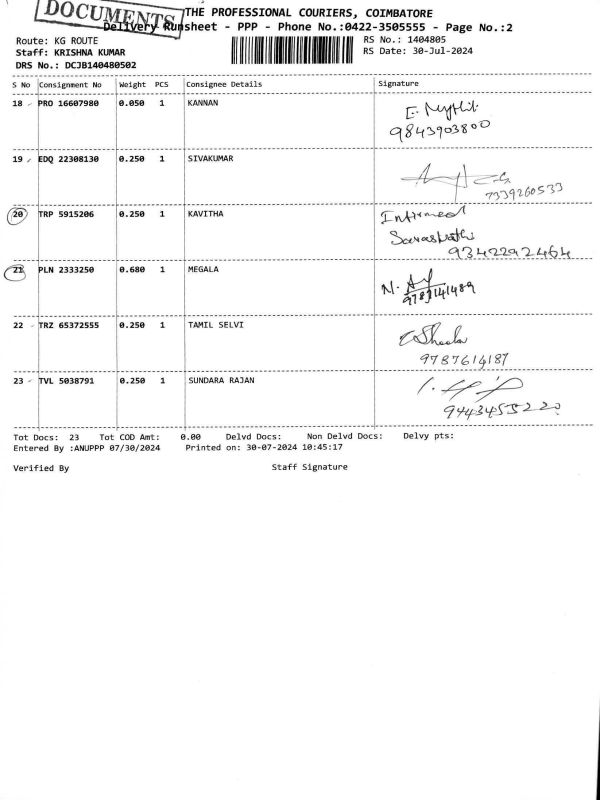 DOCUMENTS
THE PROFESSIONAL COURIERS, COIMBATORE
Delivery Runsheet - PPP - Phone No.:0422-3505555 - Page No.:2
Route: KG ROUTE RS No.: 1404805
Staff: KRISHNA KUMAR RS Date: 30-Jul-2024
DRS No.: DCJB140480502
S No Consignment No Weight PCS Consignee Details Signature
18 PRO 16607980 0.050 1 KANNAN
9843903800
19 EDQ 22308130 0.250 1 SIVAKUMAR
7339260533
20 TRP 5915206 0.250 1 KAVITHA Infirmed
Saraswathi
9342292464
21 PLN 2333250 0.680 1 MEGALA
22 TRZ 65372555 0.250 1 TAMIL SELVI
9787614187
23 TVL 5038791 0.250 1 SUNDARA RAJAN
9443455220
Tot Docs: 23 Tot COD Amt: 0.00 Delvd Docs: Non Delvd Docs: Delvy pts:
Entered By :ANUPPP 07/30/2024 Printed on: 30-07-2024 10:45:17
Verified By Staff Signature